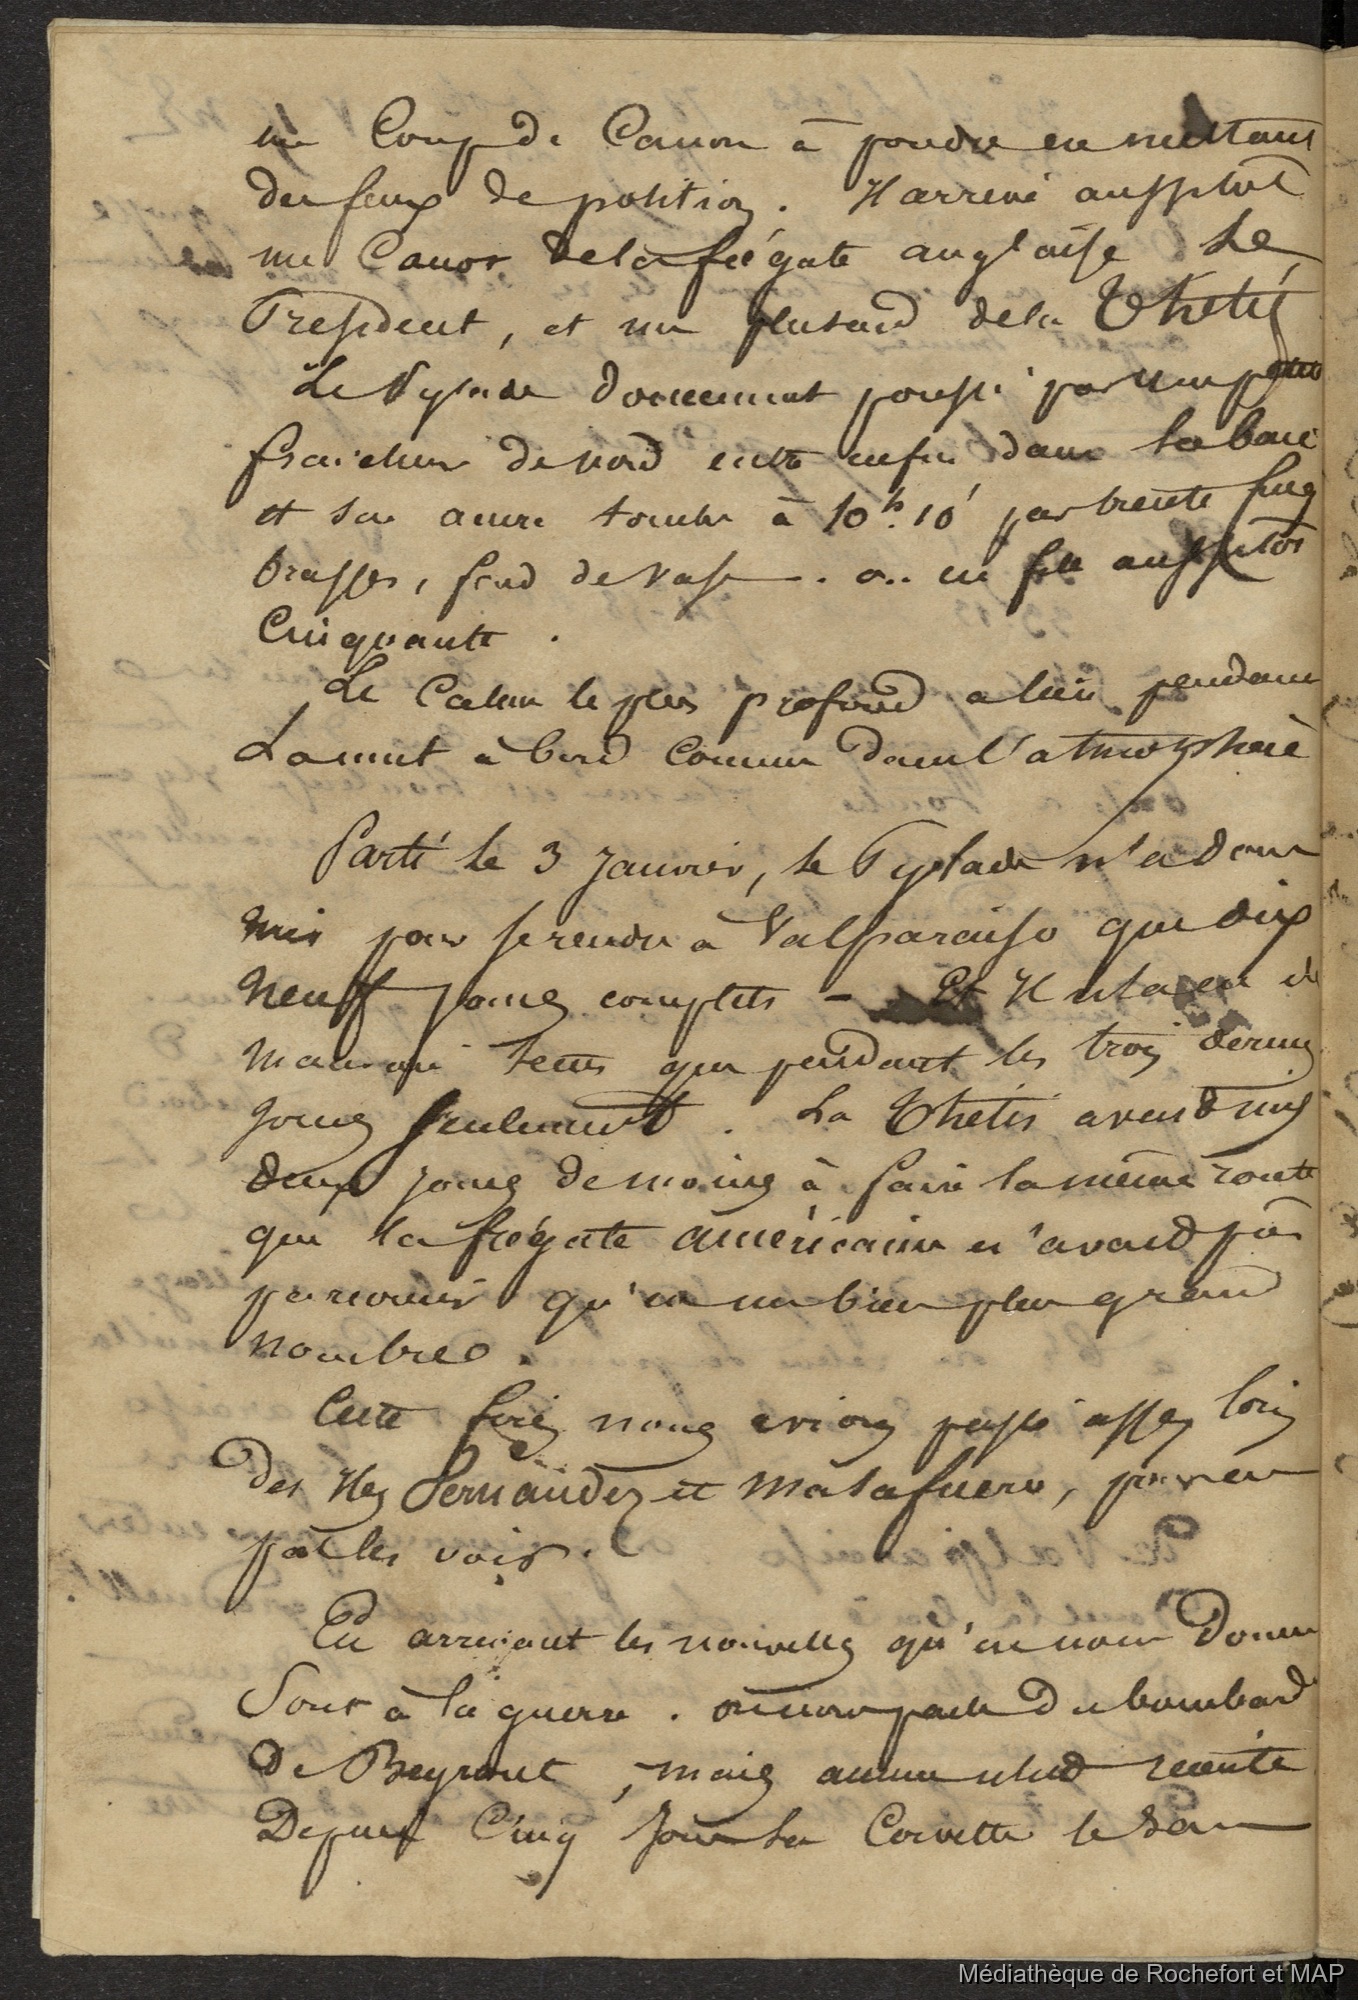 un Coup de Canon à poudre en mettant
des feux de position. Il arrive aussitôt
un Canot de la frégate anglaise Le
President, et un plus tard de la Thetis
Le Pylade doucement poussé par une petite
fraicheur de nord entre enfin dans la baie
et son ancre tombe à 10h. 10' par trente cinq
brasses, fond de vase. on en file aussitôt
Cinquante.
Le Calme le plus profond a lieu pendant
La nuit à bord comme dans l'atmosphère
Parti le 3 Janvier, le Pylade n'a donc
mis pour se rendre à Valparaiso que dix
neuf jours complets - Et Il n'a eu de
mauvais tems que pendant les trois derniers
jours seulement. La Thetis avait mis
deux jours de moins à faire la même route
que la frégate américaine n'avait pu
parcourir qu'en un bien plus grand
nombre.
Cette fois nous avions passé assez loin
des Iles Fernandez et Masafuero, pour ne
pas les voir.
En arrivant les nouvelles qu'on nous donne
Sont à la guerre. on nous parle du bombard
de Beyrout, mais aucun récente
Depuis Cinq Jours la Corvette le
Médiathèque de Rochefort et MAP